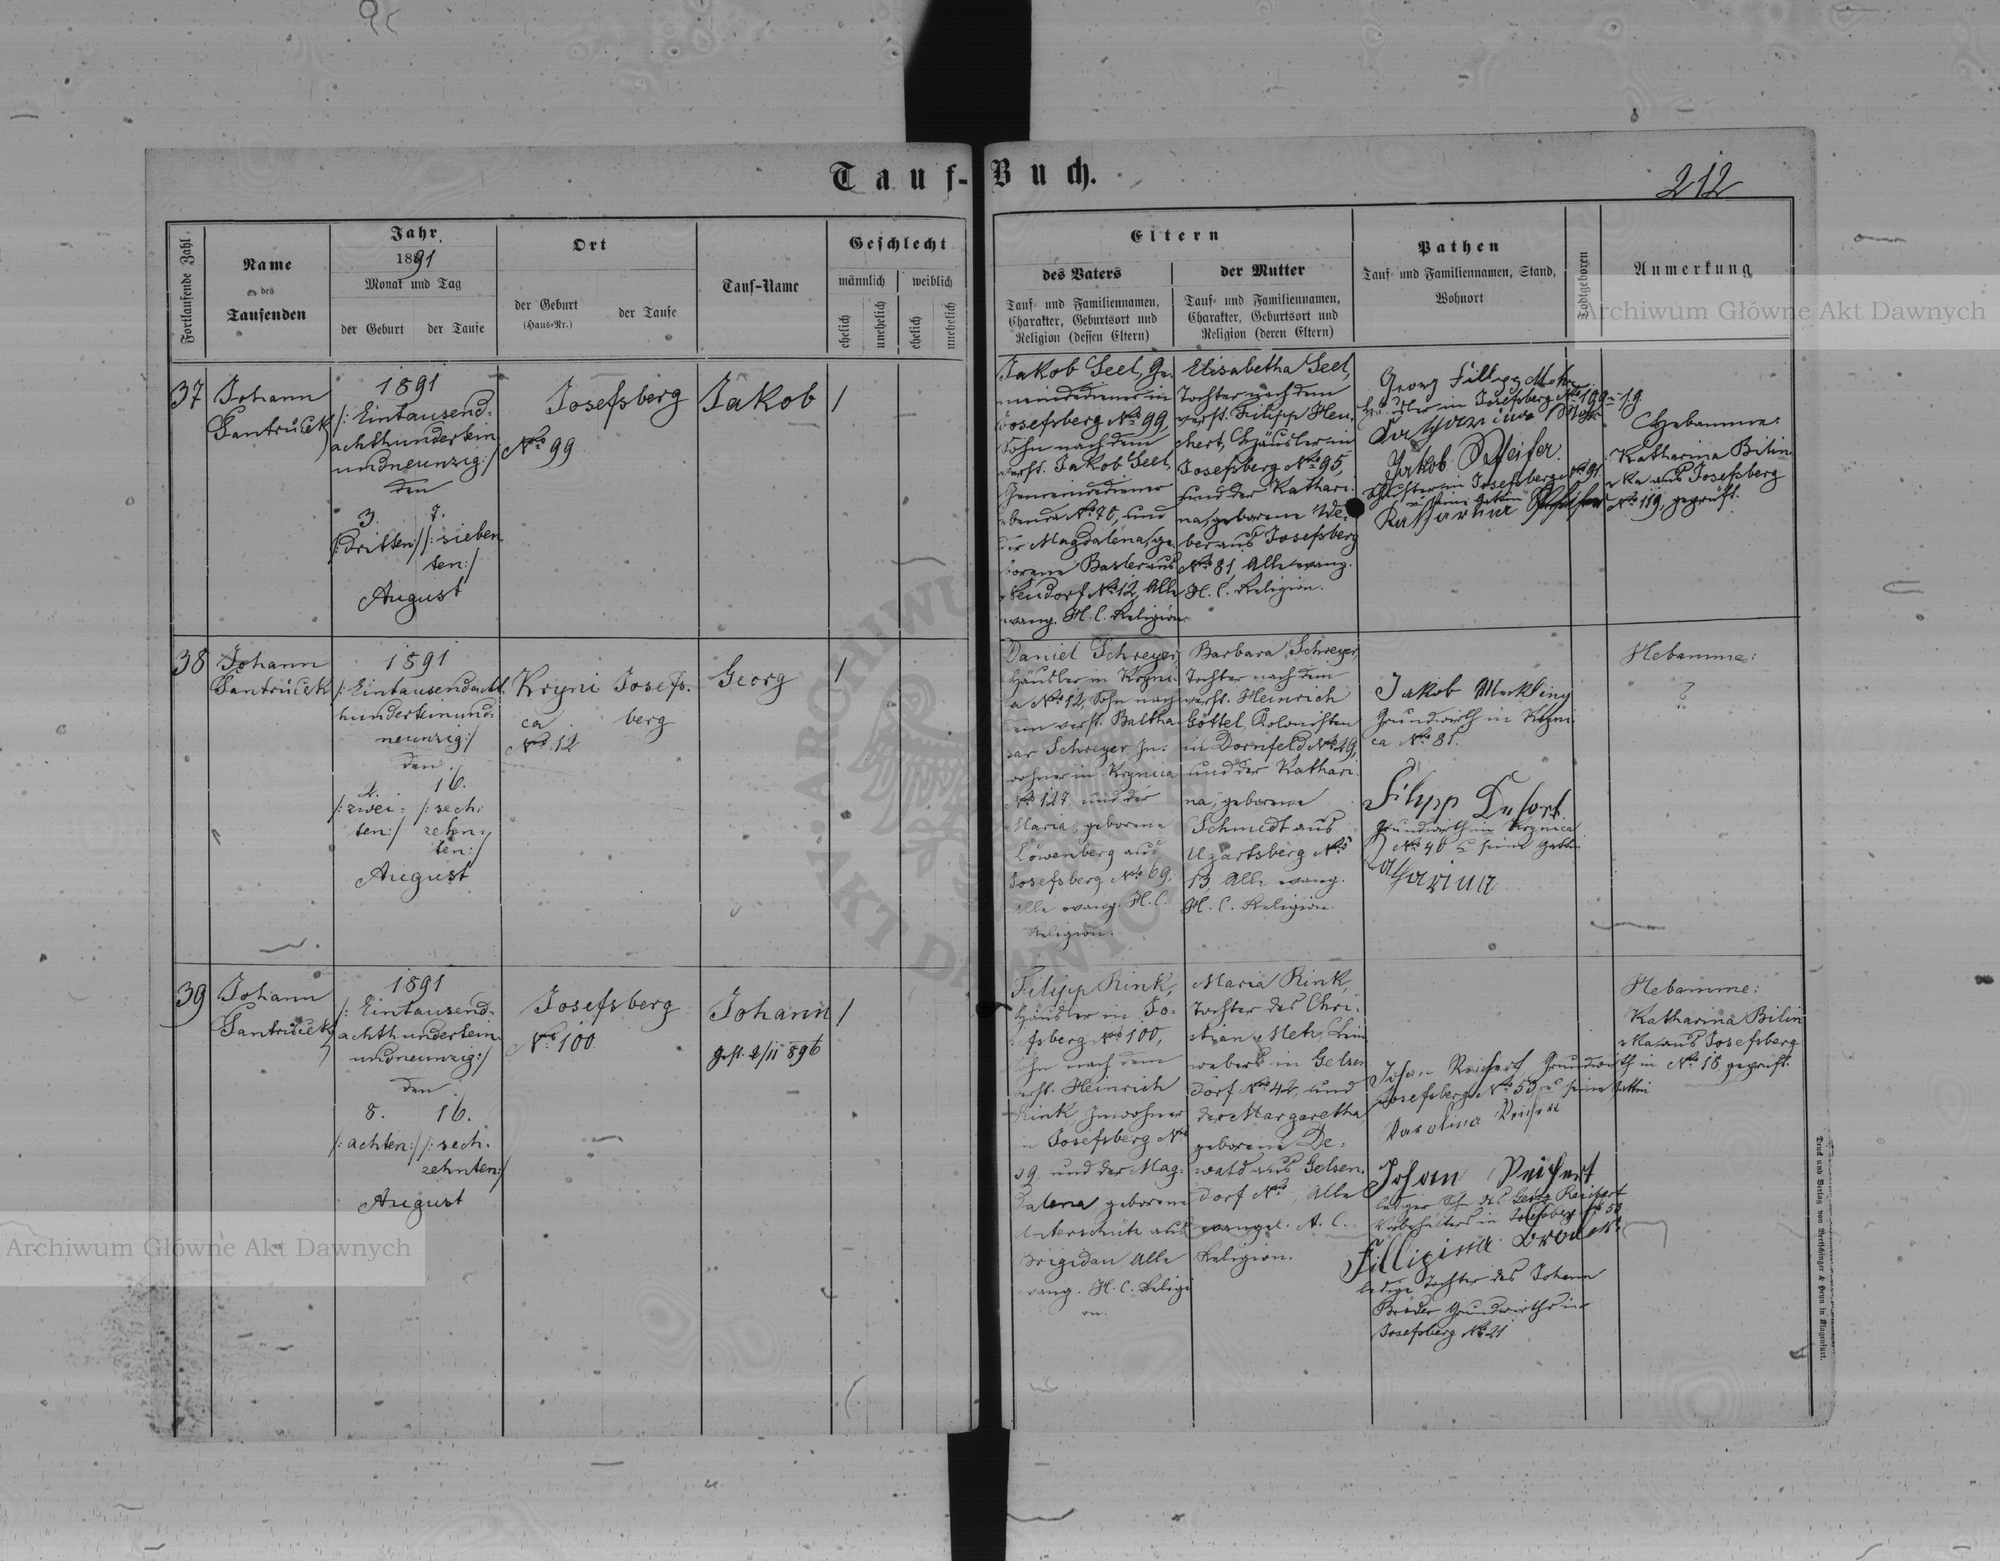 Tauf-Buch.
212
Fortlaufende Zahl
Name
des
Taufenden
Jahr
1891
Monat und Tag
der Geburt
der Taufe
Ort
der Geburt
(Haus-Nr.)
der Taufe
Tauf-Name
Geschlecht
männlich
weiblich
ehelich
unehelich
ehelich
unehelich
Eltern
des Vaters
Tauf- und Familiennamen,
Charakter, Geburtsort und
Religion (dessen Eltern)
der Mutter
Tauf- und Familiennamen,
Charakter, Geburtsort und
Religion (deren Eltern)
Pathen
Tauf- und Familiennamen, Stand,
Wohnort
Todtgeboren
Anmerkung
37
Johann
Gantrücek
1891
/: Eintausend-
achthundertein
undneunzig:/
den
3. 7.
/:dritten:/ /:sieben
ten:/
August
Josefsberg
No 99
Jakob
1
Jakob Seel, Ge-
meindediener in
Josefsberg No 99,
Sohn nach dem
verst. Jakob Seel,
Gemeindediener
ebenda No 70, und
der Magdalena, ge-
borene Basler aus
Neudorf No 12, Alle
evang. H. C. Religion.
Elisabetha Seel,
Tochter nach dem
verst. Filipp Heu-
chert, Häusler in
Josefsberg No 95,
und der Kathari-
na, geborene We-
ber aus Josefsberg
No 81 Alle evang.
H. C. Religion.
Georg Fillipp Mohr
Häusler in Josefsberg No 199-19
Jakob Pfeifer.
in Josefsberg No 91
u. seine Gattin
Katharina Pfeifer
Hebamme:
Katharina Bilin-
ska aus Josefsberg
No 119, geprüft.
38
Johann
Gantrücek
1891
/: Eintausendacht
hunderteinund
neunzig:/
den
2. 16.
/:zwei: /:sech:
ten:/ zehn:
ten:/
August
Kryni Josefs.
ca berg
No 12
Georg
1
Daniel Schreyer,
Häusler in Kryni-
ca No 12, Sohn nach
dem verst. Baltha-
sar Schreyer, In-
wohner in Krynica
No 127 und der
Maria, geborene
Löwenberg aus
Josefsberg No 69,
Alle evang. H. C.
Religion.
Barbara Schreyer,
Tochter nach dem
verst. Heinrich
Göttel, Kolonisten
in Dornfeld No 29,
und der Kathari-
na, geborene
Schmidt aus
Ugartsberg No
13, Alle evang.
H. C. Religion.
Jakob Merkling
Grundwirth in Kryni
ca No 81.
Filipp Dufort
Grundwirth in Krynica
No 40 u seine Gattin
Katharina
Hebamme:
?
39
Johann
Gantrücek
1891
/: Eintausend-
achthundertein
undneunzig:/
den
8. 16.
/:achten:/ /:sech-
zehnten:/
August
Josefsberg
No 100
Johann
gest. 2/II 896
1
Filipp Rink,
Häusler in Jo-
sefsberg No 100,
Sohn nach dem
verst. Heinrich
Rink, Inwohner
in Josefsberg No
39, und der Mag-
dalena geborene
Unterschütz aus
Brigidau Alle
evang. H. C. Religi
on.
Maria Rink,
Tochter des Chri-
stian Metz, Lein
webers in Gelsen
dorf No 42, und
der Margaretha,
geborene De-
wald aus Gelsen-
dorf No , Alle
evangel. A. C.
Religion.
Johan Reichert Grundwirth in
Josefsberg No 53 u seine Gattin
Karolina Reichert
Johan Reichert
lediger Sohn des Georg Reichert
in Josefsberg No 53
Fillipina Broder
ledige Tochter des Johann
Bröder Grundwirths in
Josefsberg No 21
Hebamme:
Katharina Bilin
ska aus Josefsberg
No 18 geprüft.
Druck und Verlag von Bertschinger & Heyn in Klagenfurt.
Archiwum Główne Akt Dawnych
Archiwum Główne Akt Dawnych
ARCHIWUM AKT DAWNYCH